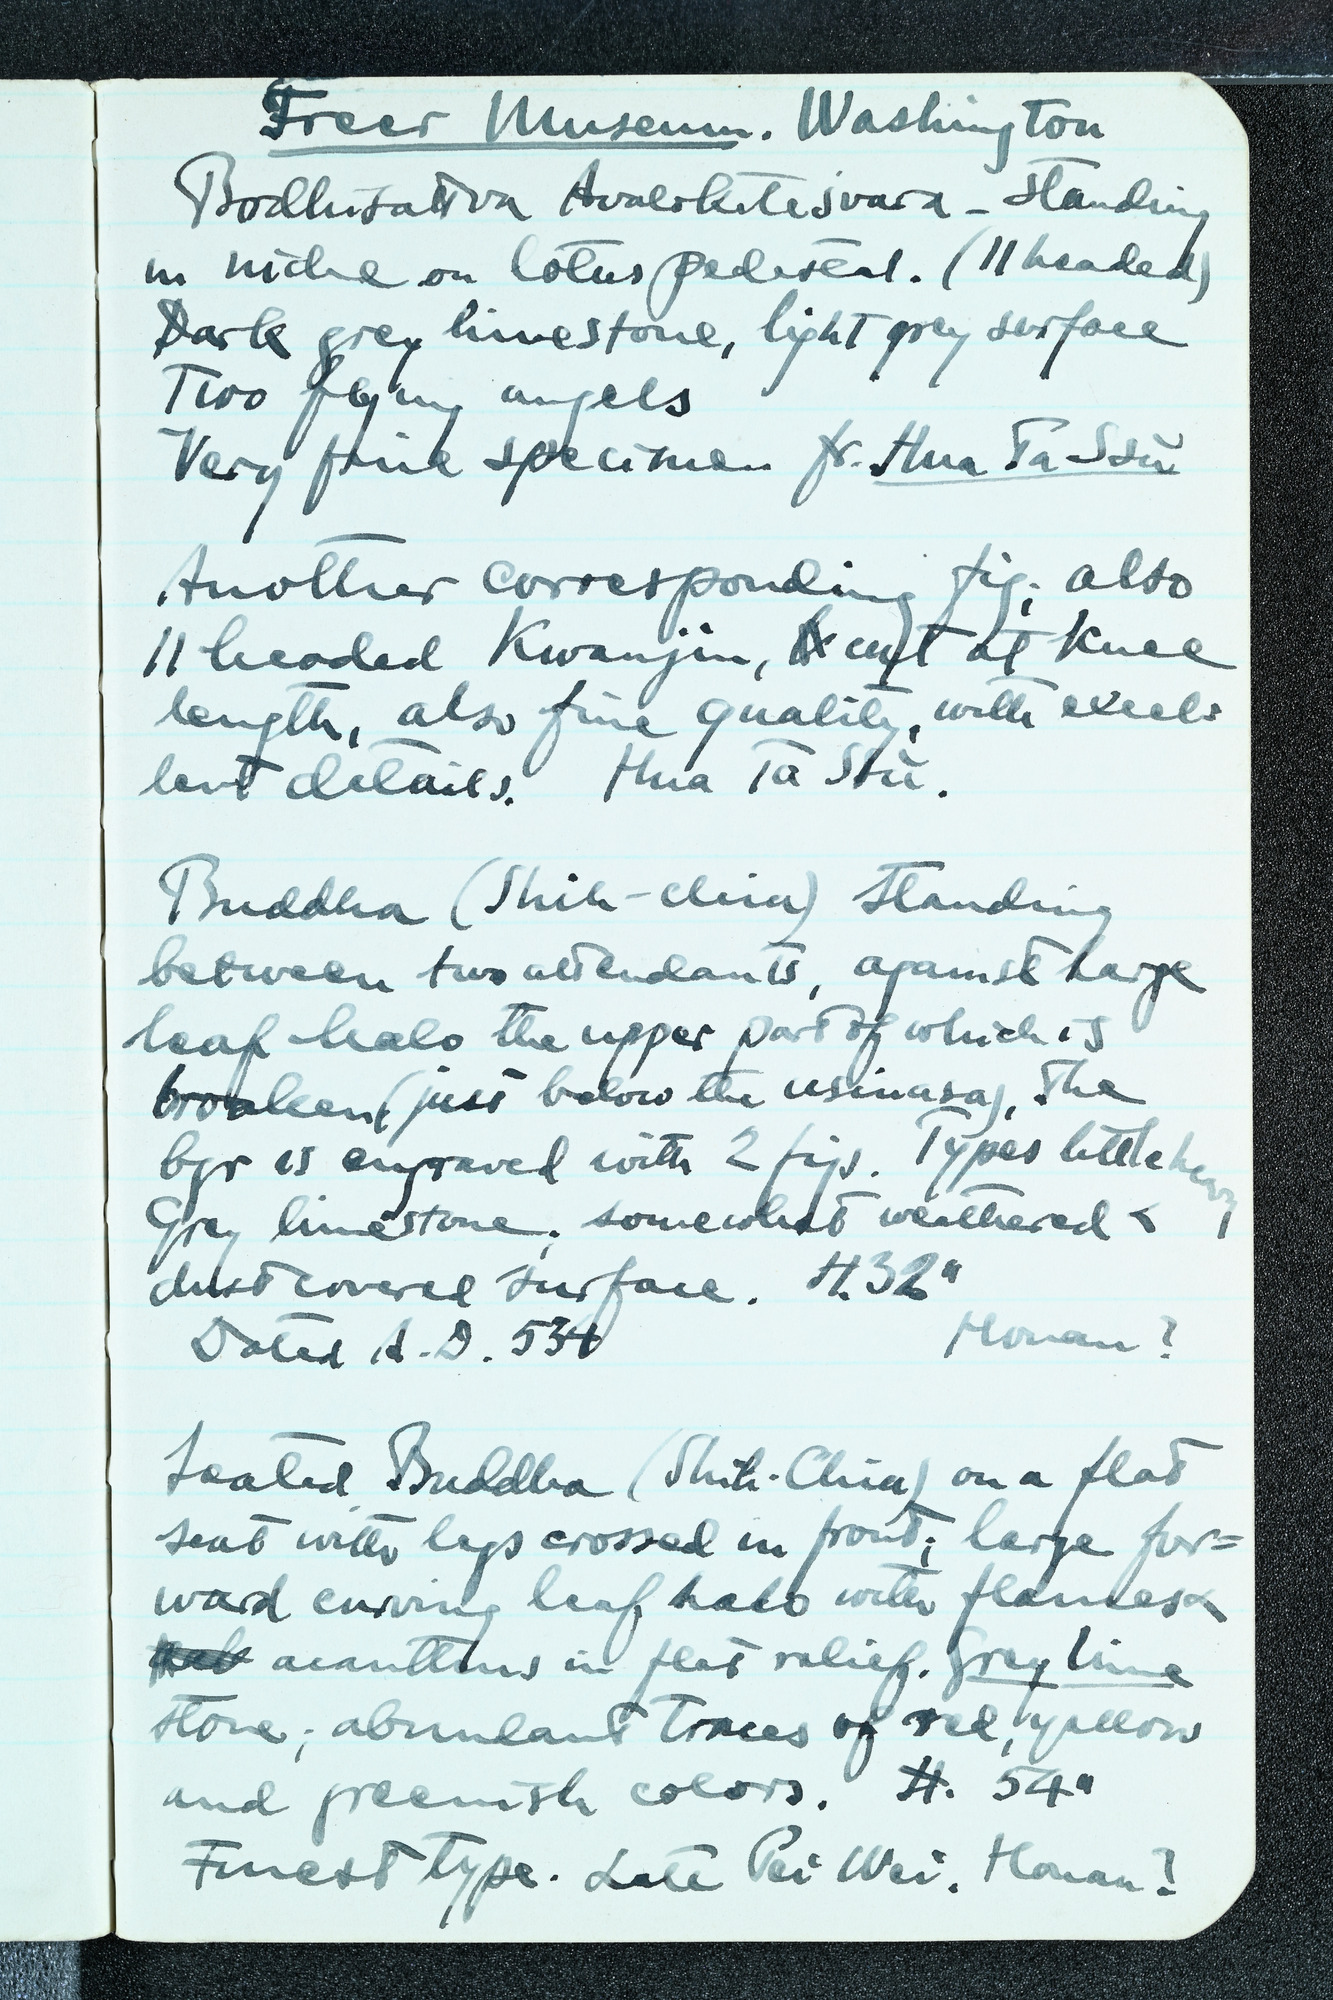 Freer Museum. Washington
Bodhisattva Avalokitesvara – standing
in niche on lotus pedestal. (11 headed)
Dark grey limestone, light grey surface
Two flying angels
Very fine specimen fr. Hua Ta Ssŭ
Another corresponding fig; also
11 headed Kwanjin, cut at knee
length, also fine quality, with excel=
lent details. Hua Ta Ssŭ.
Buddha (Shih-chia) standing
between two attendants, against large
leaf-halo the upper part of which is
broaken (just below the usinasa), the
bgr is engraved with 2 figs. Types little heavy
Grey limestone, somewhat weathered &
dust covered surface. H. 32"
Dated A.D. 534 Honan?
Seated Buddha (Shih-Chia) on a flat
seat with legs crossed in front; large for=
ward curving leaf halo with flames &
acanthus in flat relief. Grey lime
stone; abundant traces of red, yellow
and greenish colors. H. 54"
Finest type. Late Pei Wei. Honan?